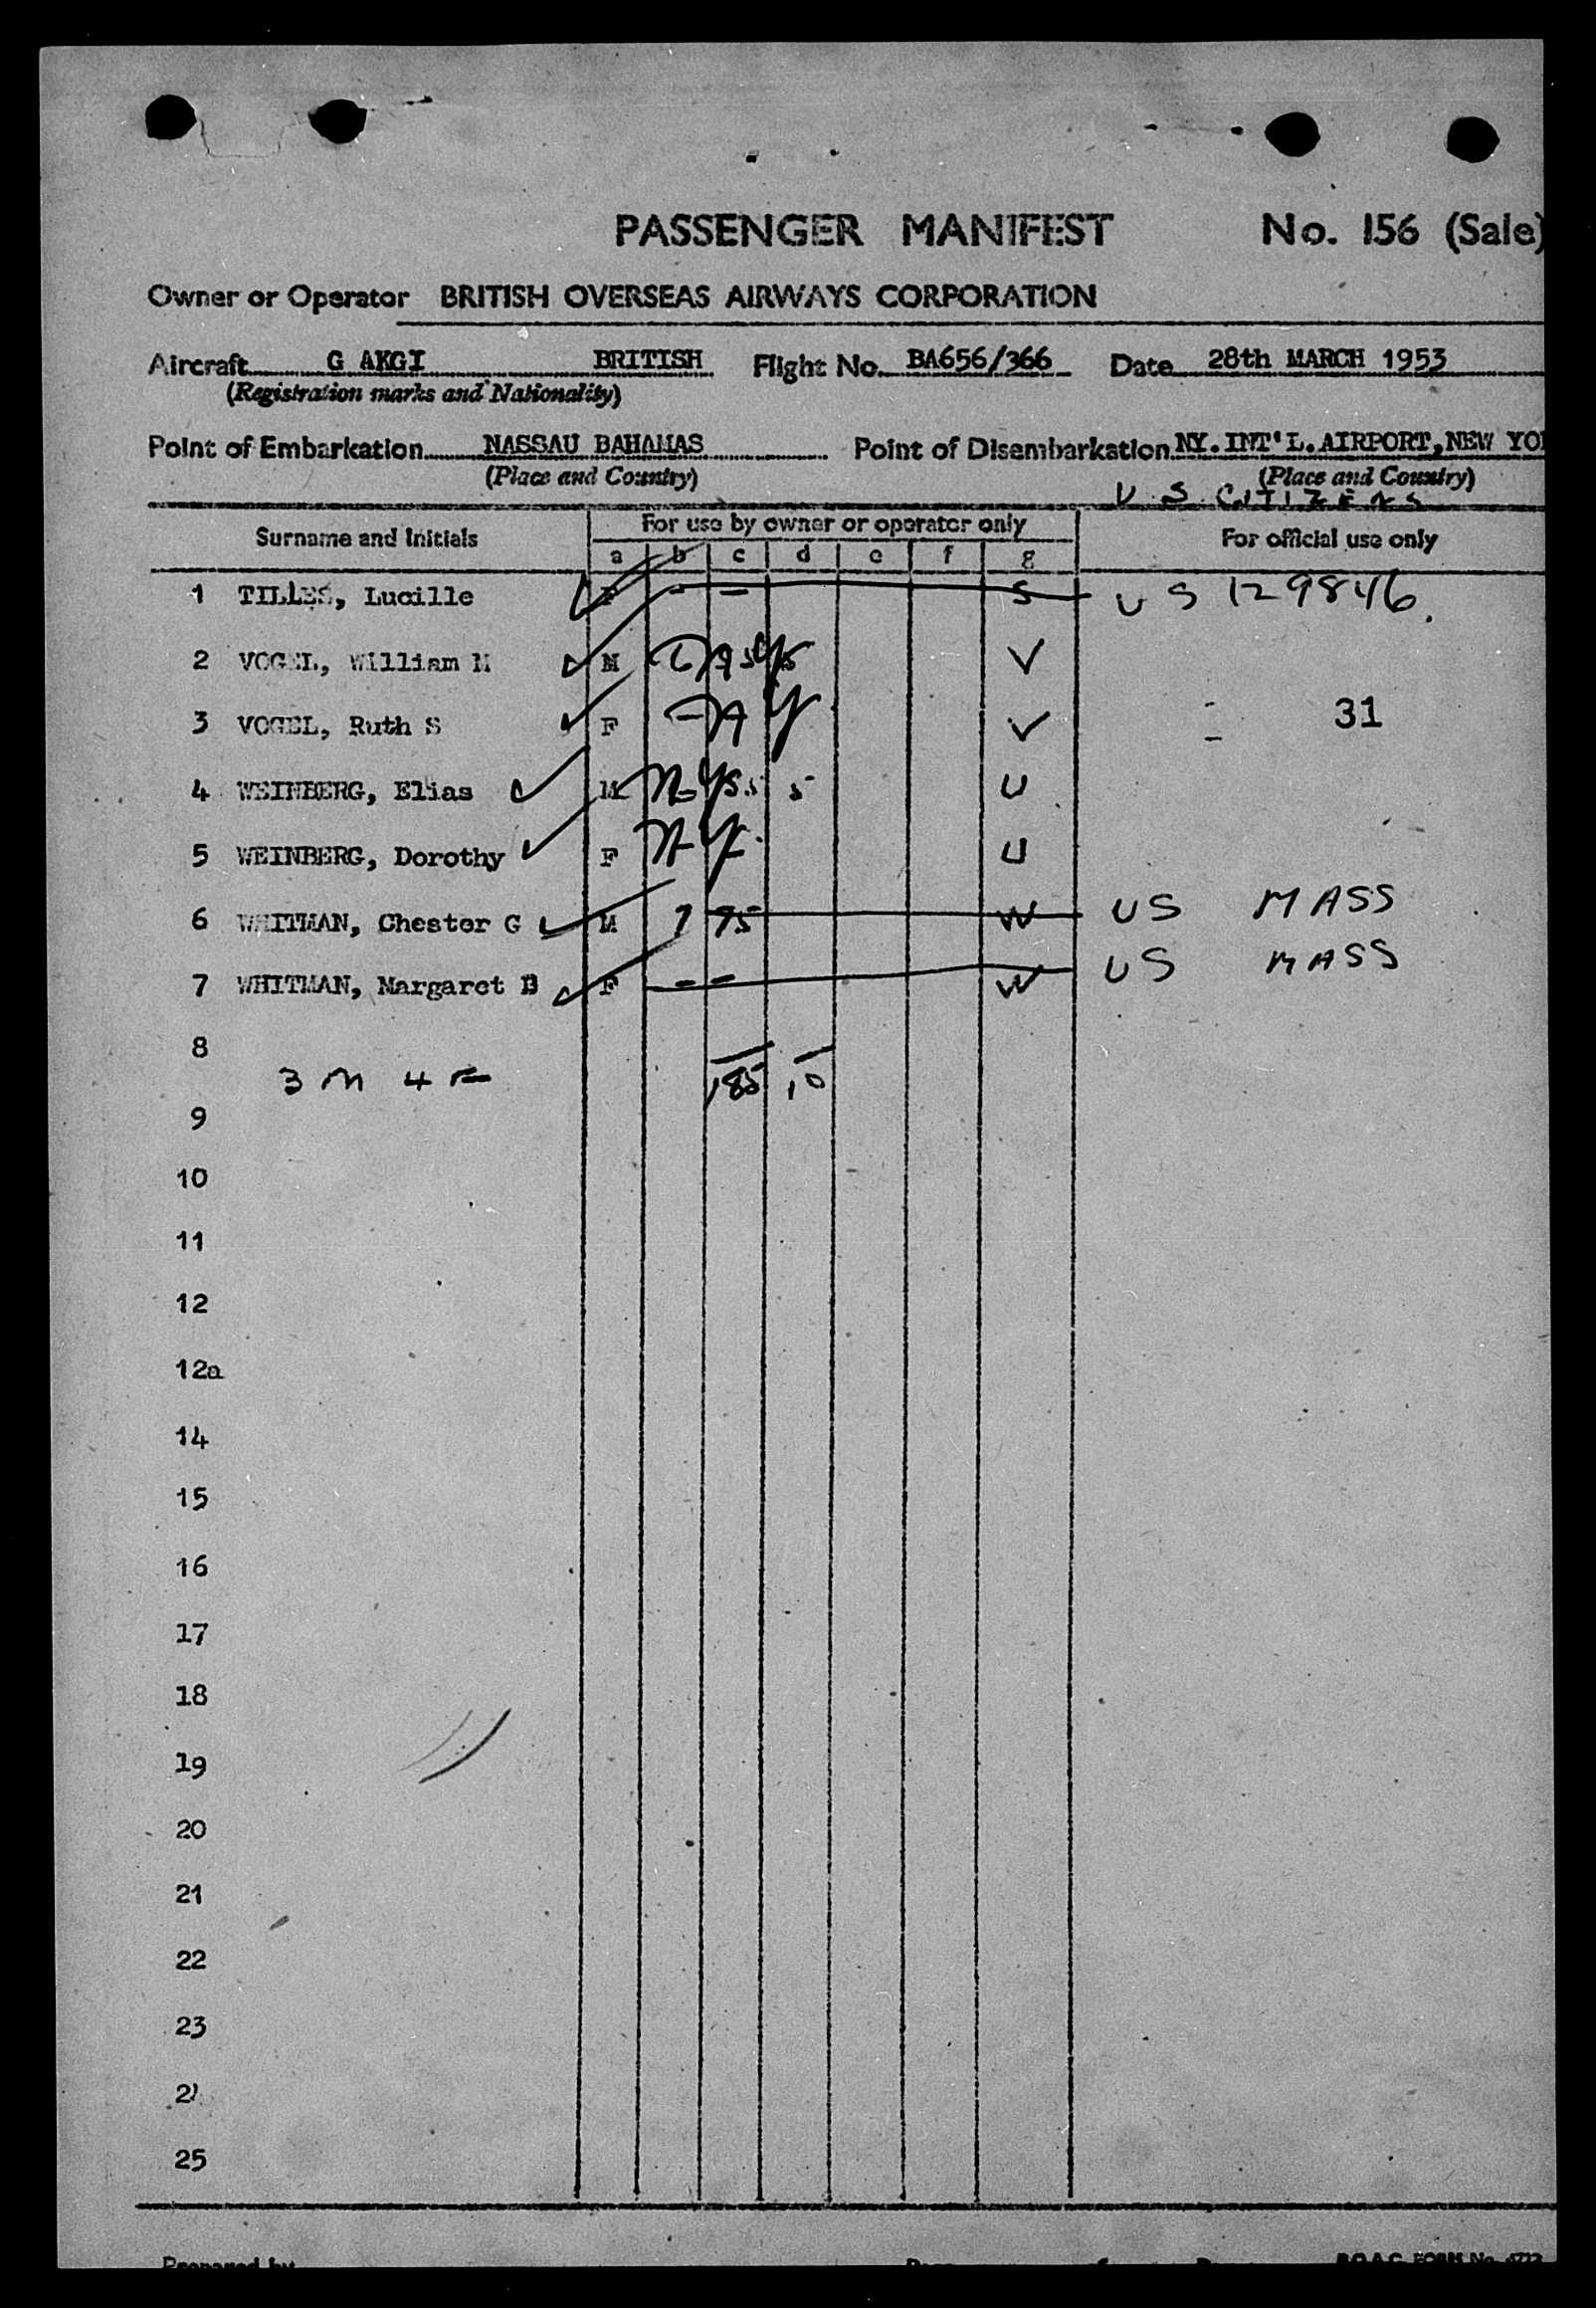 PASSENGER MANIFEST No. 156 (Sale)
Owner or Operator BRITISH OVERSEAS AIRWAYS CORPORATION
Aircraft G AKGI BRITISH Flight No. BA656/366 Date 28th MARCH 1953
(Registration marks and Nationality)
Point of Embarkation NASSAU BAHAMAS Point of Disembarkation NY.INT'L.AIRPORT,NEW YO
(Place and Country) (Place and Country)
U S CITIZENS
Surname and Initials For use by owner or operator only For official use only
a b c d e f g
1 TILLES, Lucille F - - S US 129846.
2 VOGEL, William M M V
3 VOGEL, Ruth S F V 31
4 WEINBERG, Elias M 5 U
5 WEINBERG, Dorothy F U
6 WHITMAN, Chester G M 7 75 W US MASS
7 WHITMAN, Margaret B F - - W US MASS
8
3 M 4 F 185 10
9
10
11
12
12a
14
15
16
17
18
19
20
21
22
23
2
25
Prepared by B.O.A.C. FORM No.